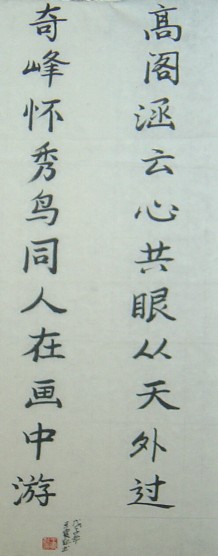 高阁涵云心共眼从天外过
奇峰怀秀鸟同人在画中游